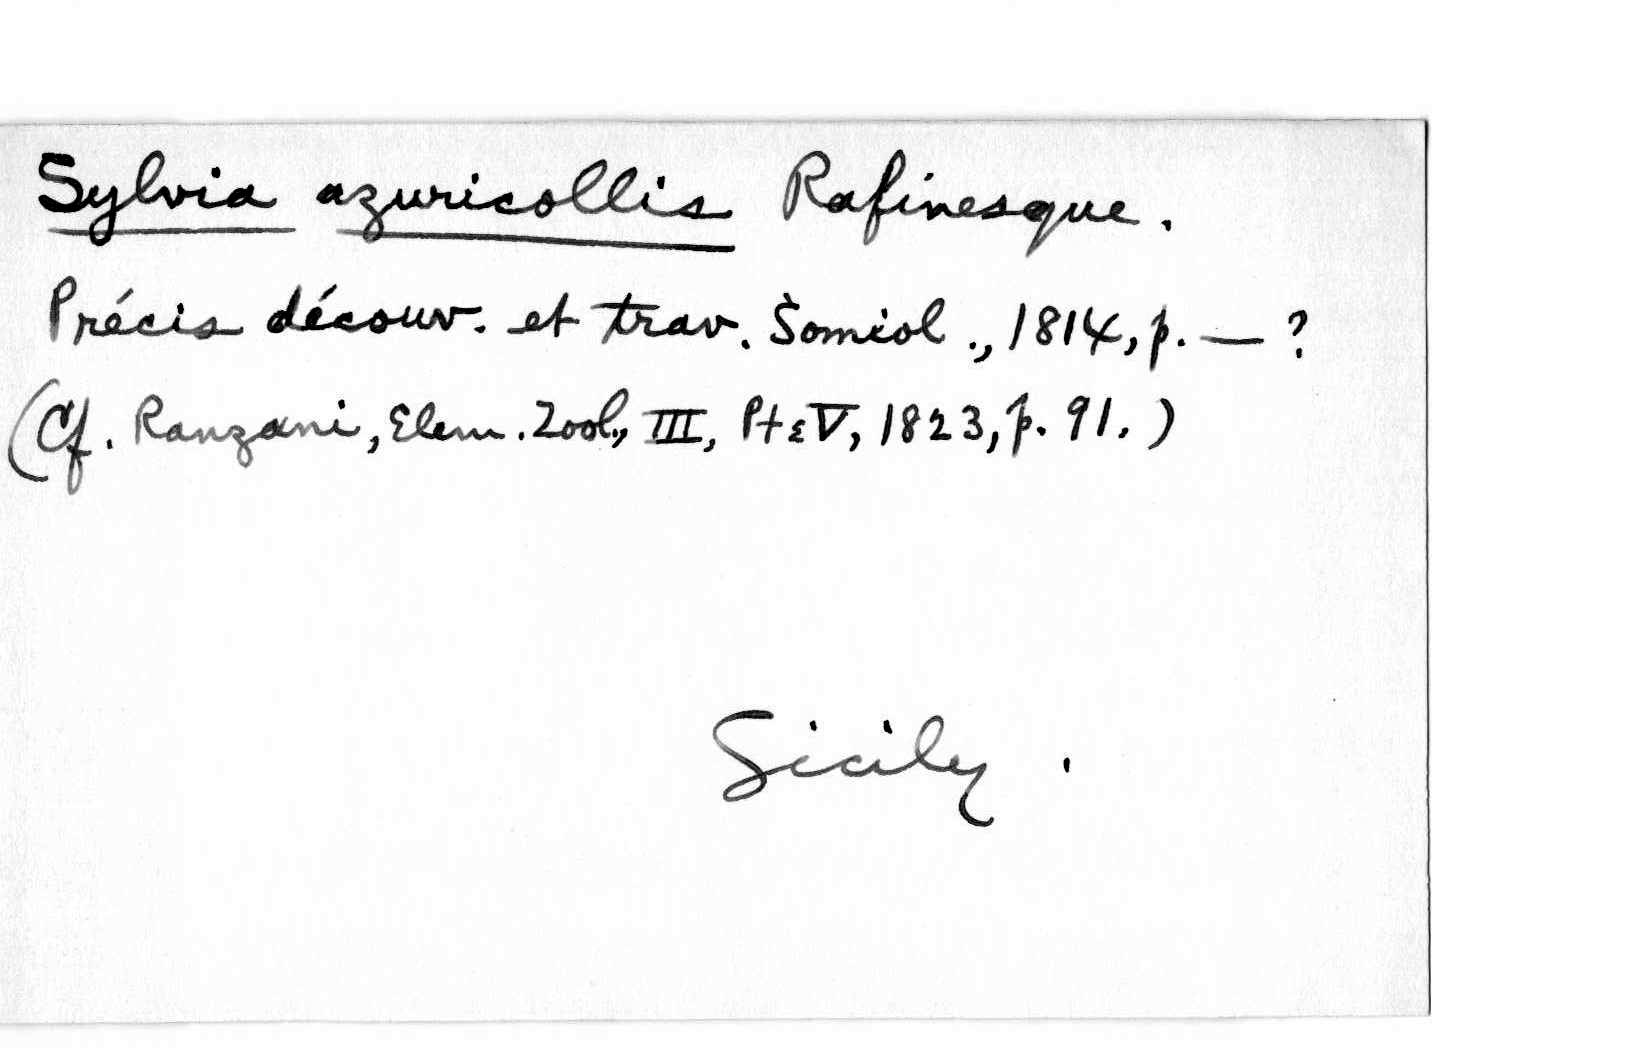 Sylvia azuricollis Rafinesque.
Précis découv. et trav. Somiol., 1814, p. — ?
(Cf. Ranzani, Elem. Zool., III, Pt. V, 1823, p. 91.)
Sicily.